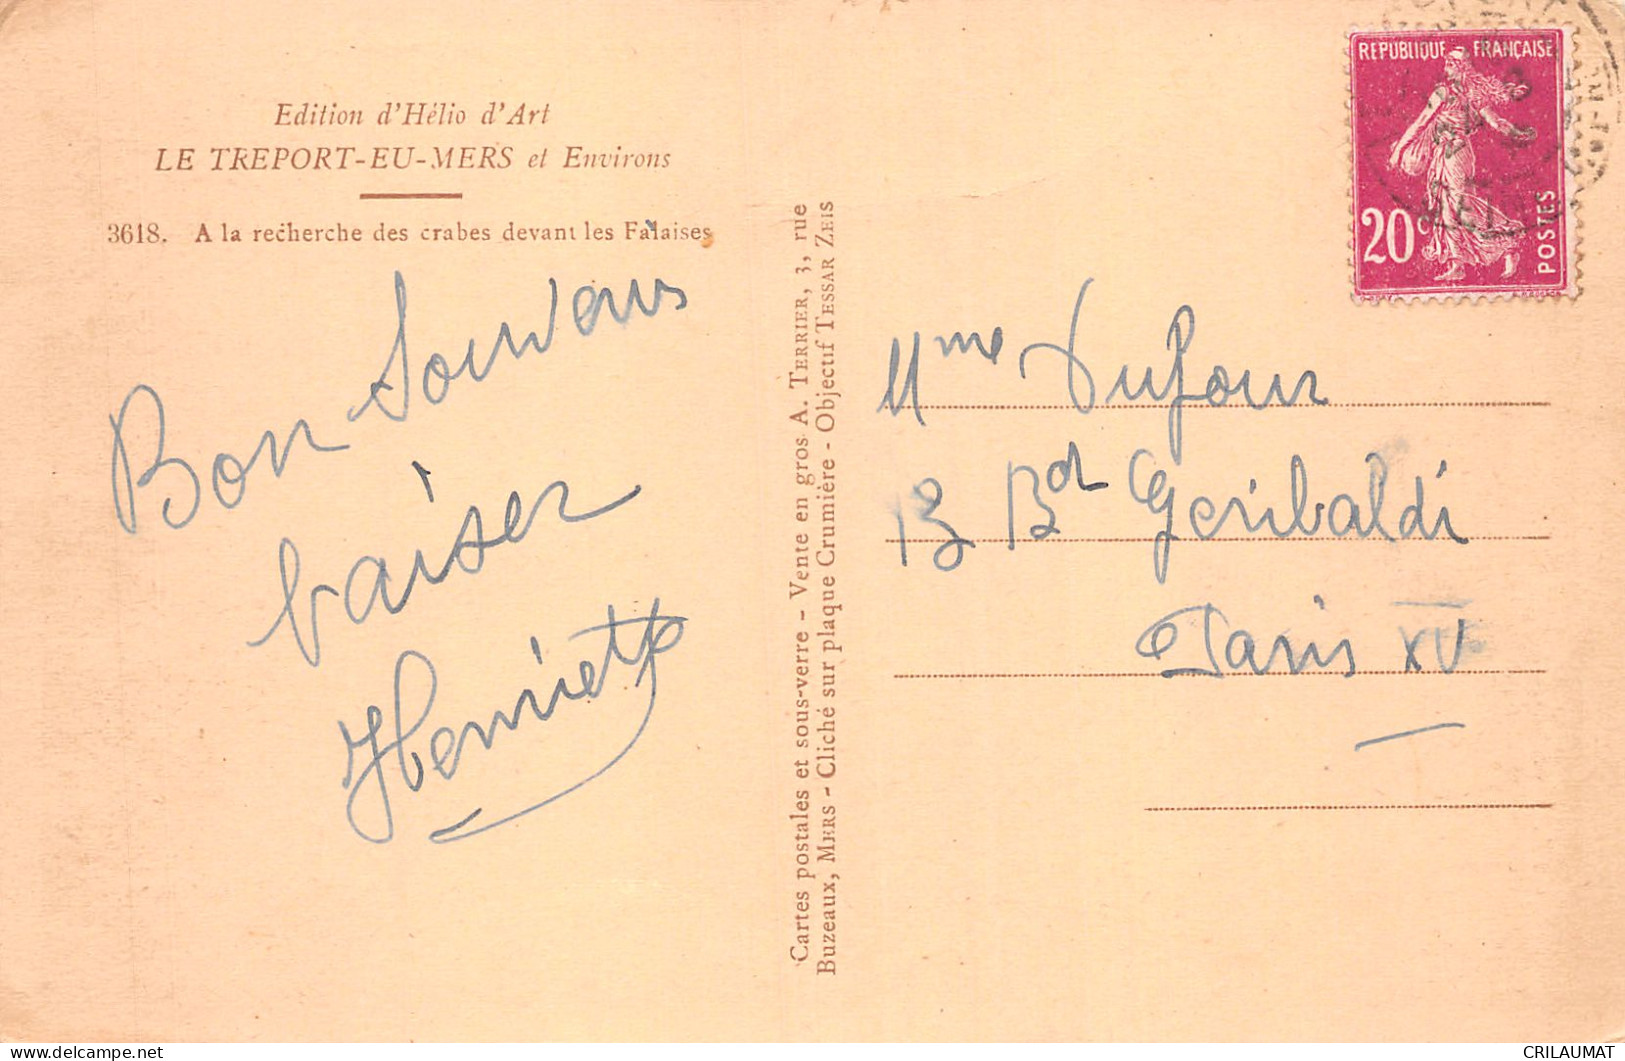 Edition d'Hélio d'Art
LE TREPORT-EU-MERS et Environs
3618. A la recherche des crabes devant les Falaises
Bon Souvenirs
baiser
Henriette
Cartes postales et sous-verre - Vente en gros A. TERRIER, 3, rue
Buzeaux, MERS - Cliché sur plaque Crumière - Objectif TESSAR ZEIS
REPUBLIQUE FRANÇAISE
20c
POSTES
Mme Dufour
13 Bd Geribaldi
Paris XVe
CRILAUMAT